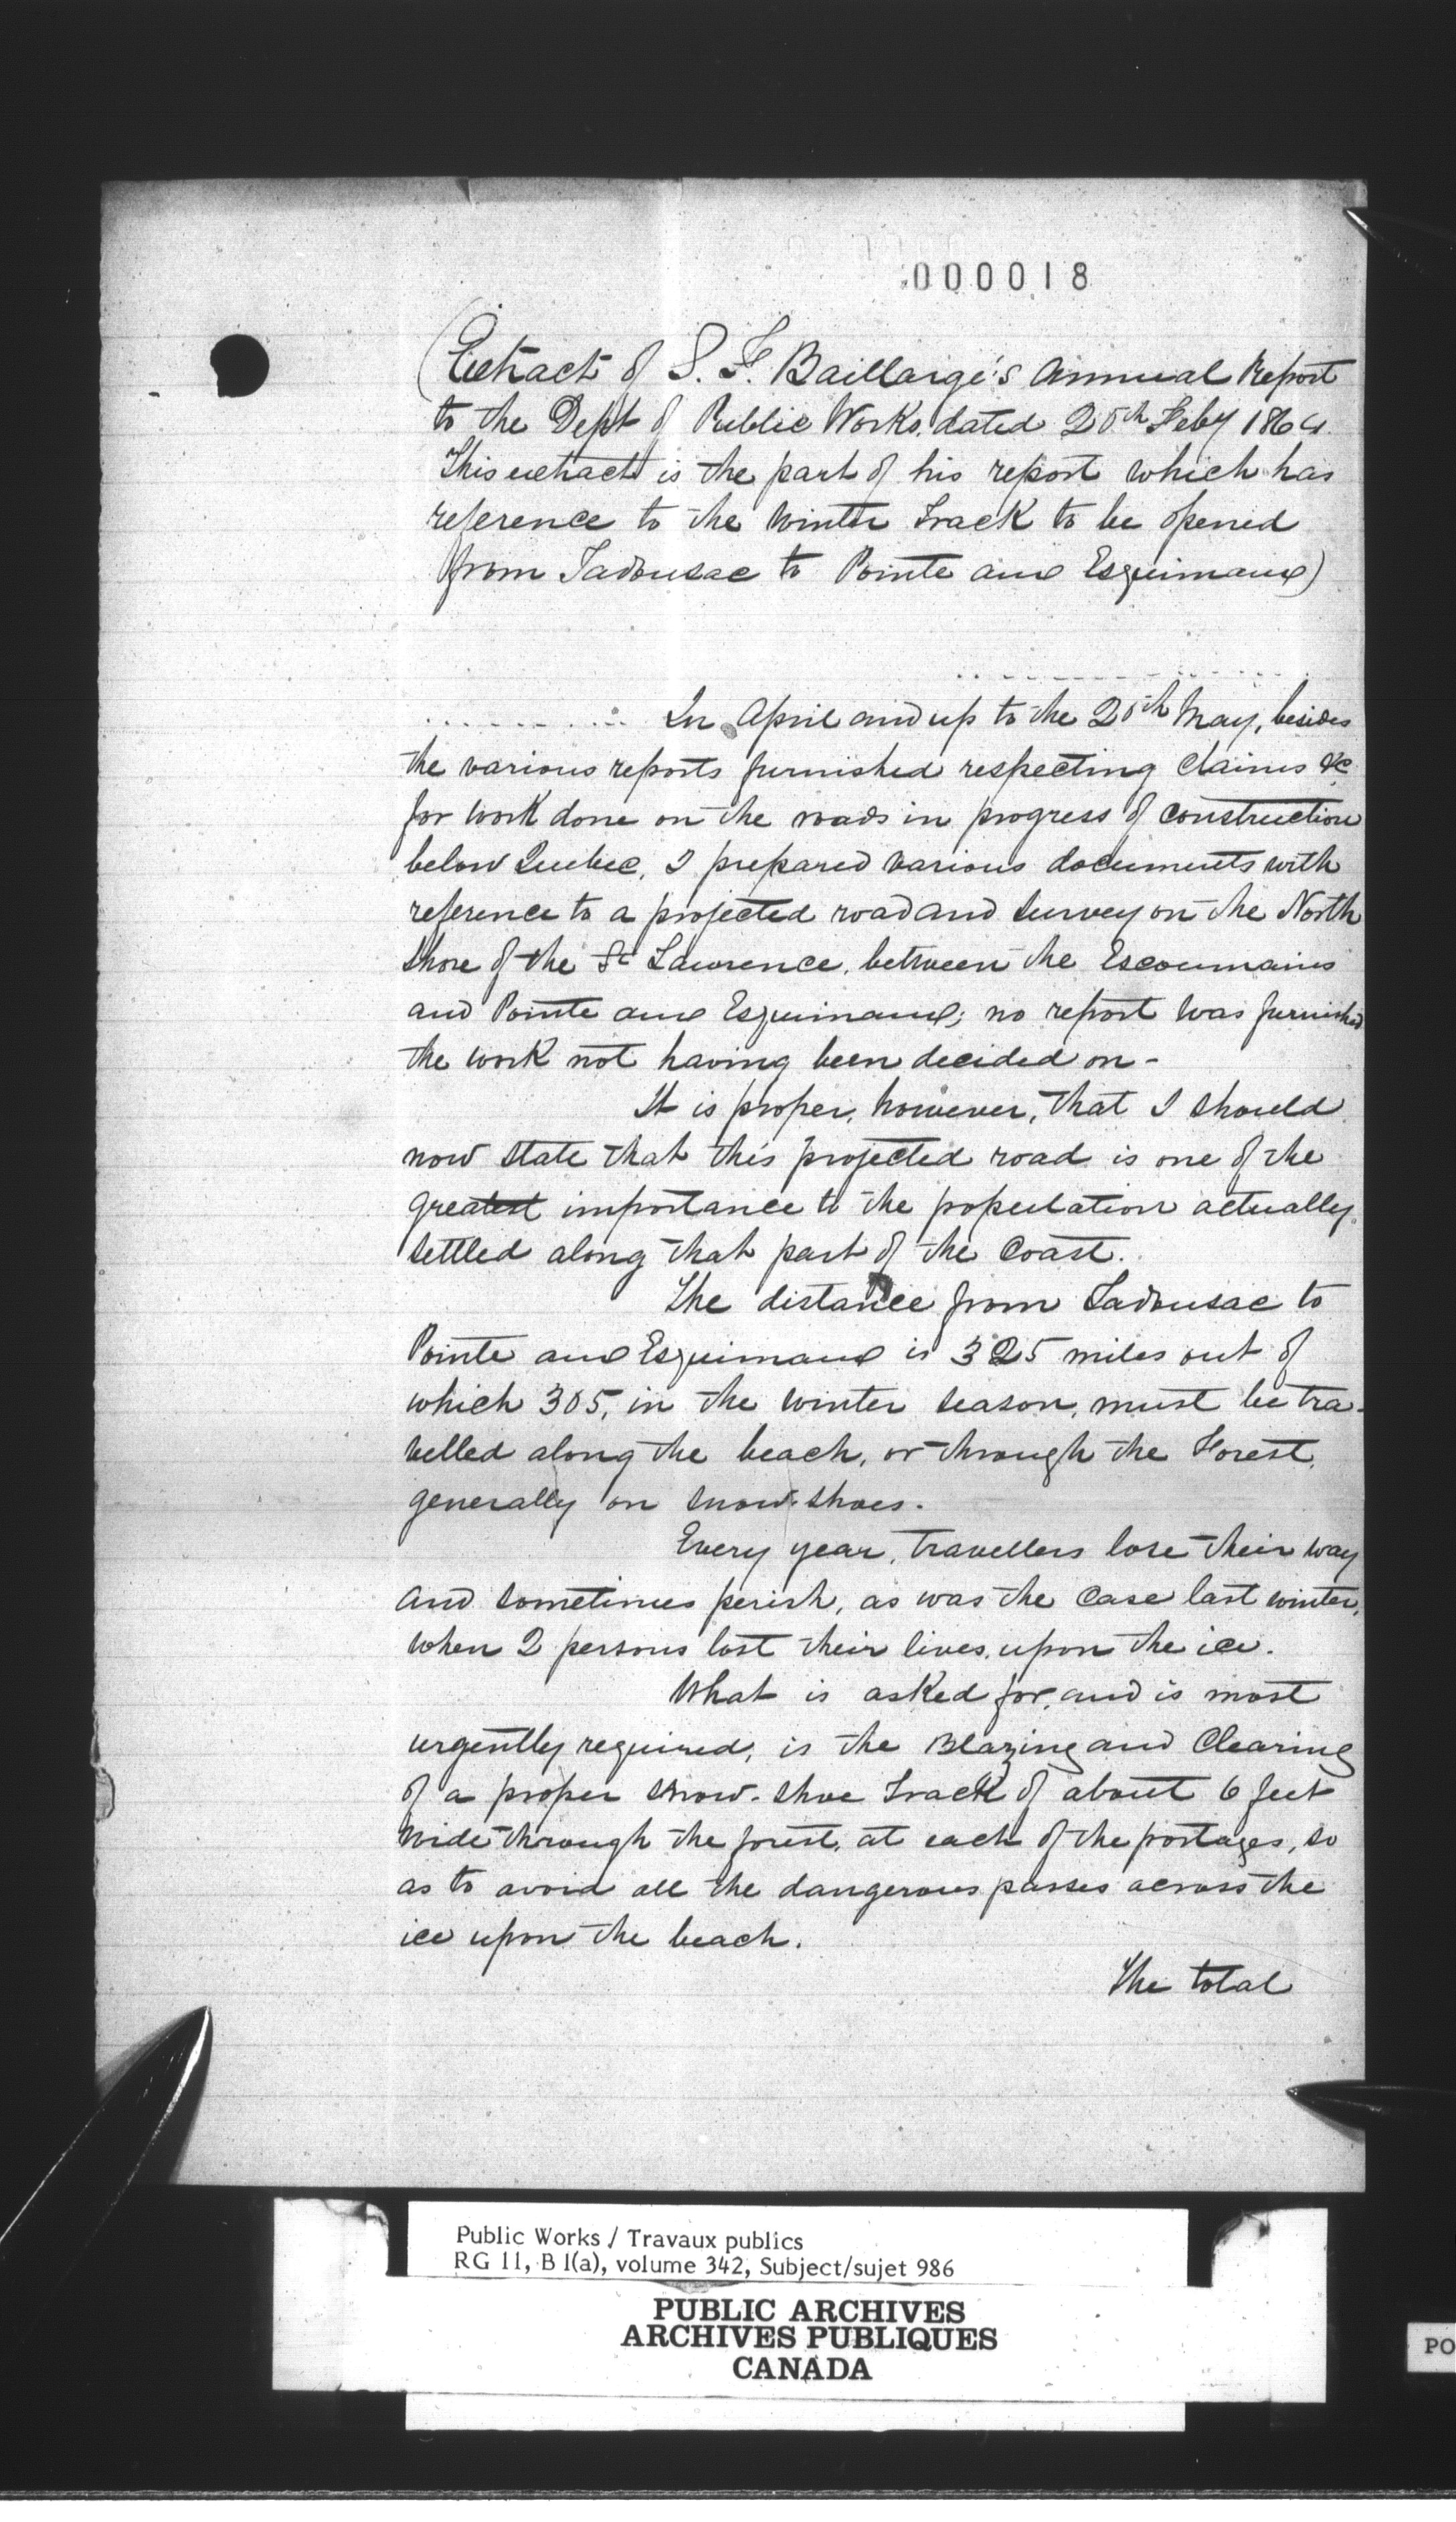 000018
(Extract of G. F. Baillairgé's Annual Report
to the Dept of Public Works, dated 20th Feby 1864.
This extract is the part of his report which has
reference to the winter Track to be opened
from Tadousac to Pointe aux Esquimaux)
In April and up to the 20th May, besides
the various reports furnished respecting Claims &c
for work done on the roads in progress of construction
below Quebec, I prepared various documents with
reference to a projected road and survey on the North
Shore of the St Lawrence, between the Escoumains
and Pointe aux Esquimaux; no report was furnished
the work not having been decided on -
It is proper, however, that I should
now state that this projected road is one of the
greatest importance to the population actually
settled along that part of the Coast.
The distance from Tadousac to
Pointe aux Esquimaux is 325 miles out of
which 305, in the winter season, must be tra-
velled along the beach, or through the Forest,
generally on snow-shoes.
Every year, travellers lose their way
and sometimes perish, as was the case last winter,
when 2 persons lost their lives, upon the ice.
What is asked for, and is most
urgently required, is the Blazing and Clearing
of a proper snow-shoe Track of about 6 feet
wide through the forest, at each of the portages, so
as to avoid all the dangerous passes across the
ice upon the beach.
The total
Public Works / Travaux publics
RG 11, B 1(a), volume 342, Subject/sujet 986
PUBLIC ARCHIVES
ARCHIVES PUBLIQUES
CANADA
PO